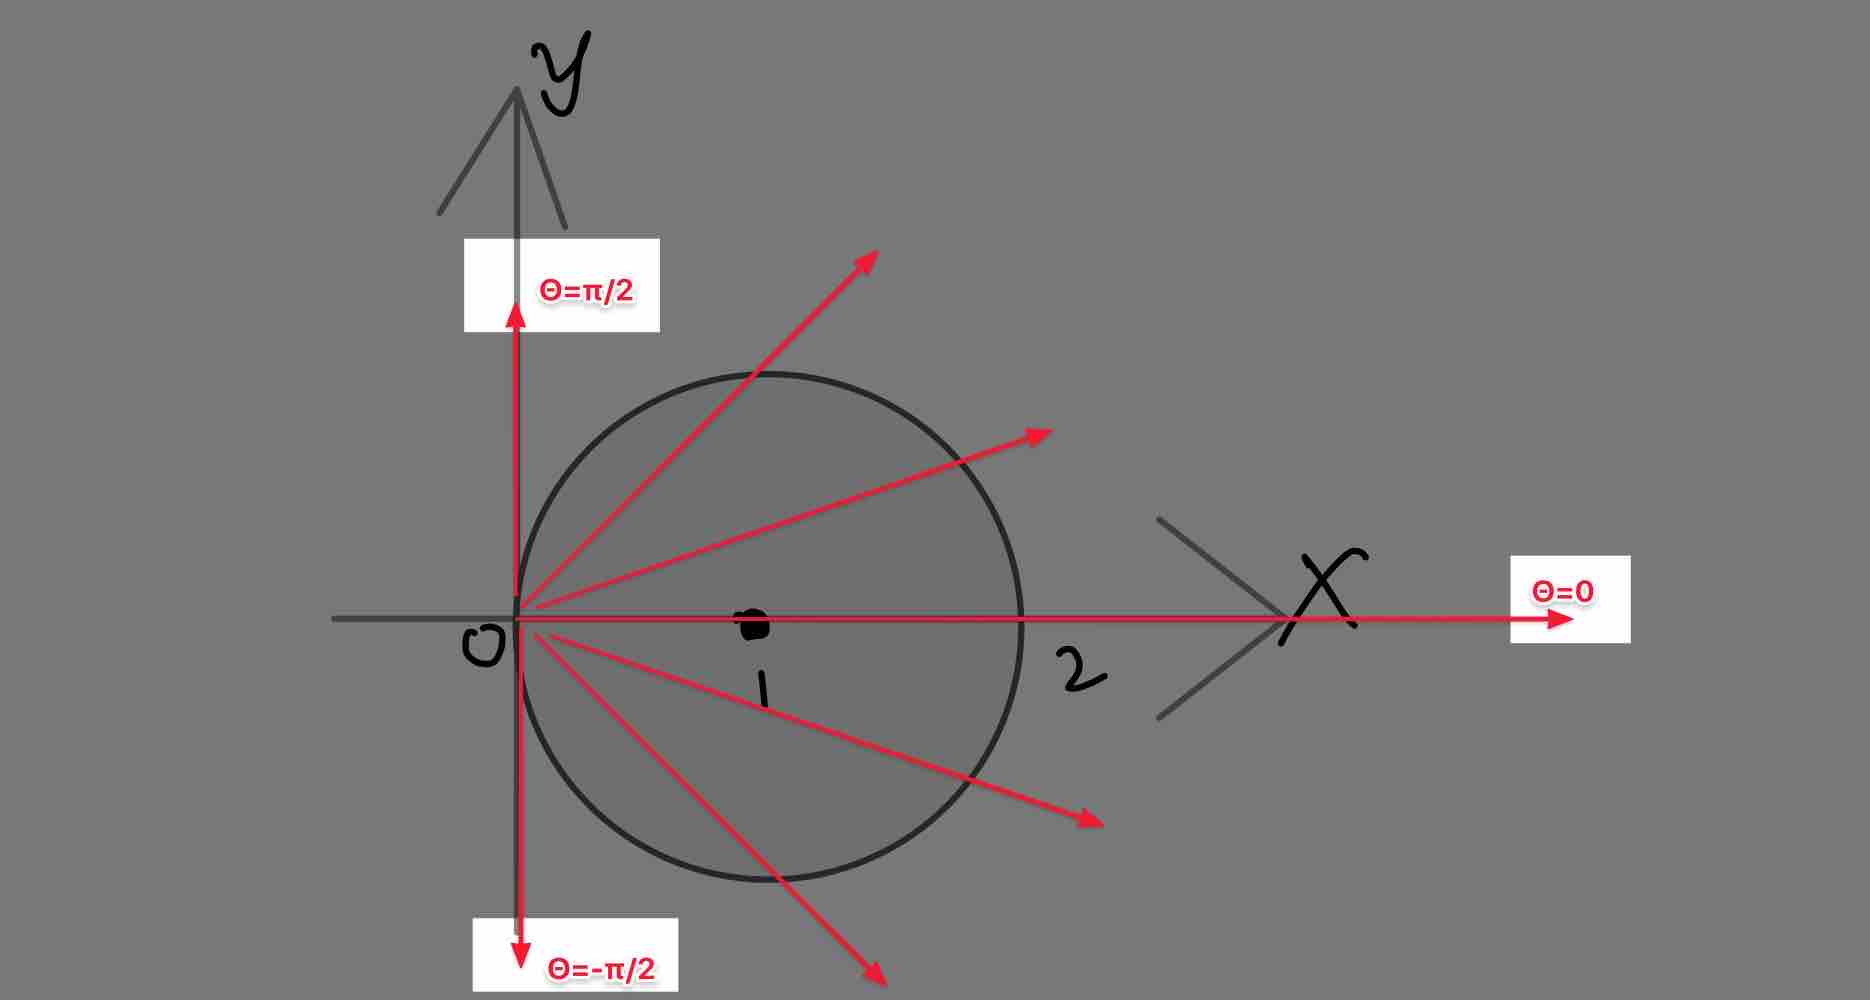 y
Θ=π/2
X
Θ=0
0
1
2
Θ=-π/2